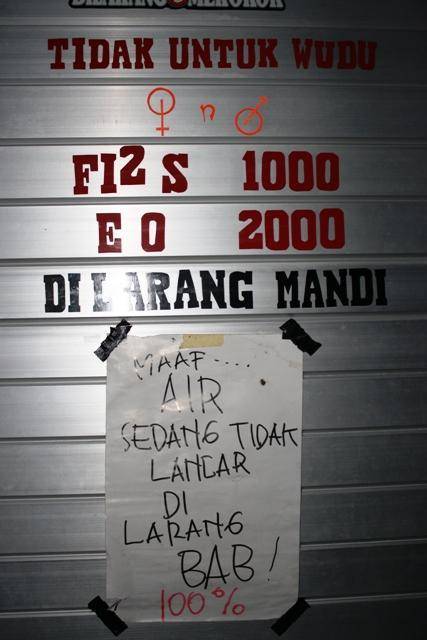 DILARANG MEROKOK
TIDAK UNTUK WUDU
♀ n ♂
FI2 S 1000
E O 2000
DILARANG MANDI
MAAF.....
AIR
SEDANG TIDAK
LANCAR
DI
LARANG
BAB!
100%